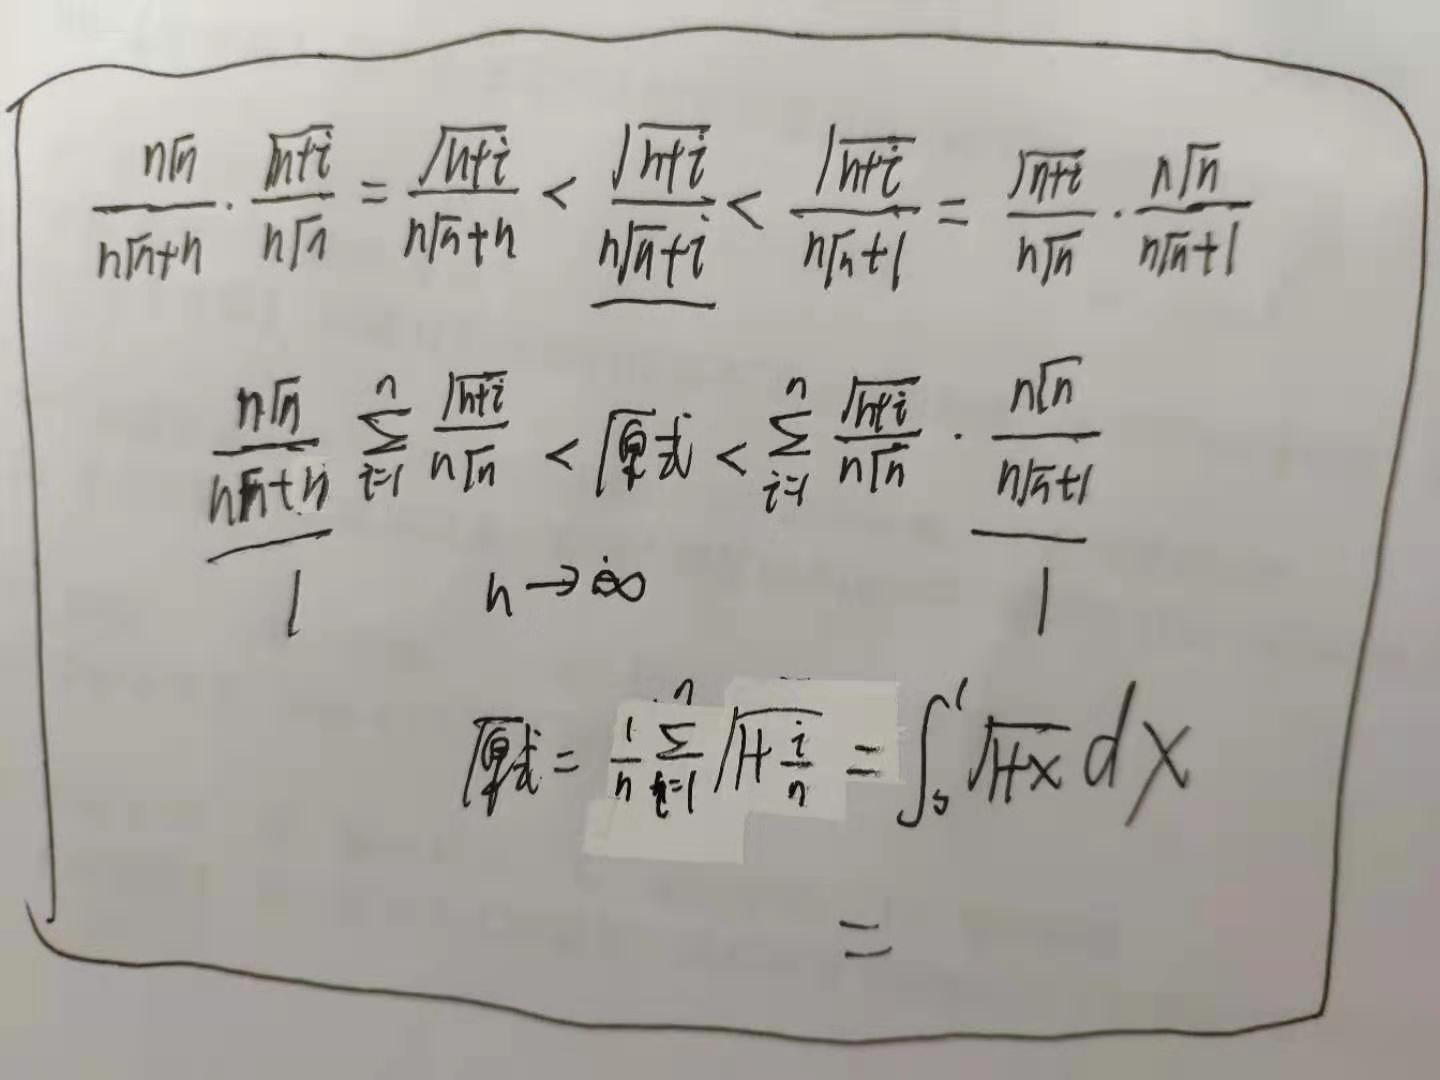 n√n/(n√n+n) · √(n+i)/(n√n) = √(n+i)/(n√n+n) < √(n+i)/(n√n+i) < √(n+i)/(n√n+1) = √(n+i)/(n√n) · n√n/(n√n+1)
n√n/(n√n+n) ∑_{i=1}^{n} √(n+i)/(n√n) < 原式 < ∑_{i=1}^{n} √(n+i)/(n√n) · n√n/(n√n+1)
1 n→∞ 1
原式 = 1/n ∑_{i=1}^{n} √(1+i/n) = ∫_0^1 √(1+x) dx
=